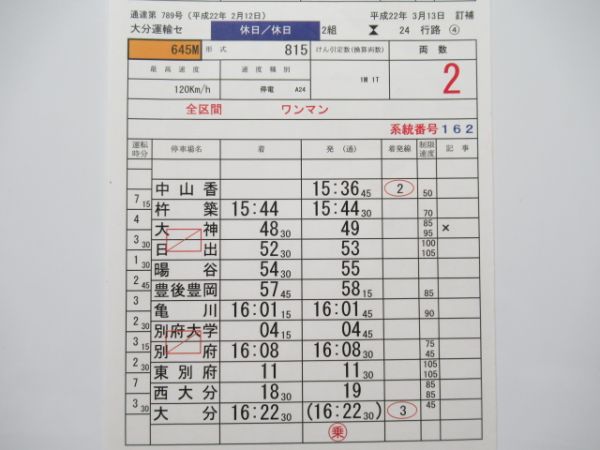 通達第 789号 (平成22年 2月12日) 平成22年 3月13日 訂補
大分運輸セ 休日/休日 2組 24 行路 ④
645M 形式 815 けん引定数(換算両数) 両数
最高速度 速度種別 1M 1T 2
120Km/h 停電 A24
全区間 ワンマン
系統番号162
運転時分 停車場名 着 発 (通) 着発線 制限速度 記事
中山香 15:36 45 2 50
7 15
杵築 15:44 15:44 30 70
4
大神 48 30 49 85 95 ×
3 30
日出 52 30 53 100 105
1 30
暘谷 54 30 55
2 45
豊後豊岡 57 45 58 15 85
3
亀川 16:01 15 16:01 45 90
2 30
別府大学 04 15 04 45
3 15
別府 16:08 16:08 30 75 45
2 30
東別府 11 11 30 105 105
7
西大分 18 30 19 85 85
3 30
大分 16:22 30 (16:22 30) 3 45
乗